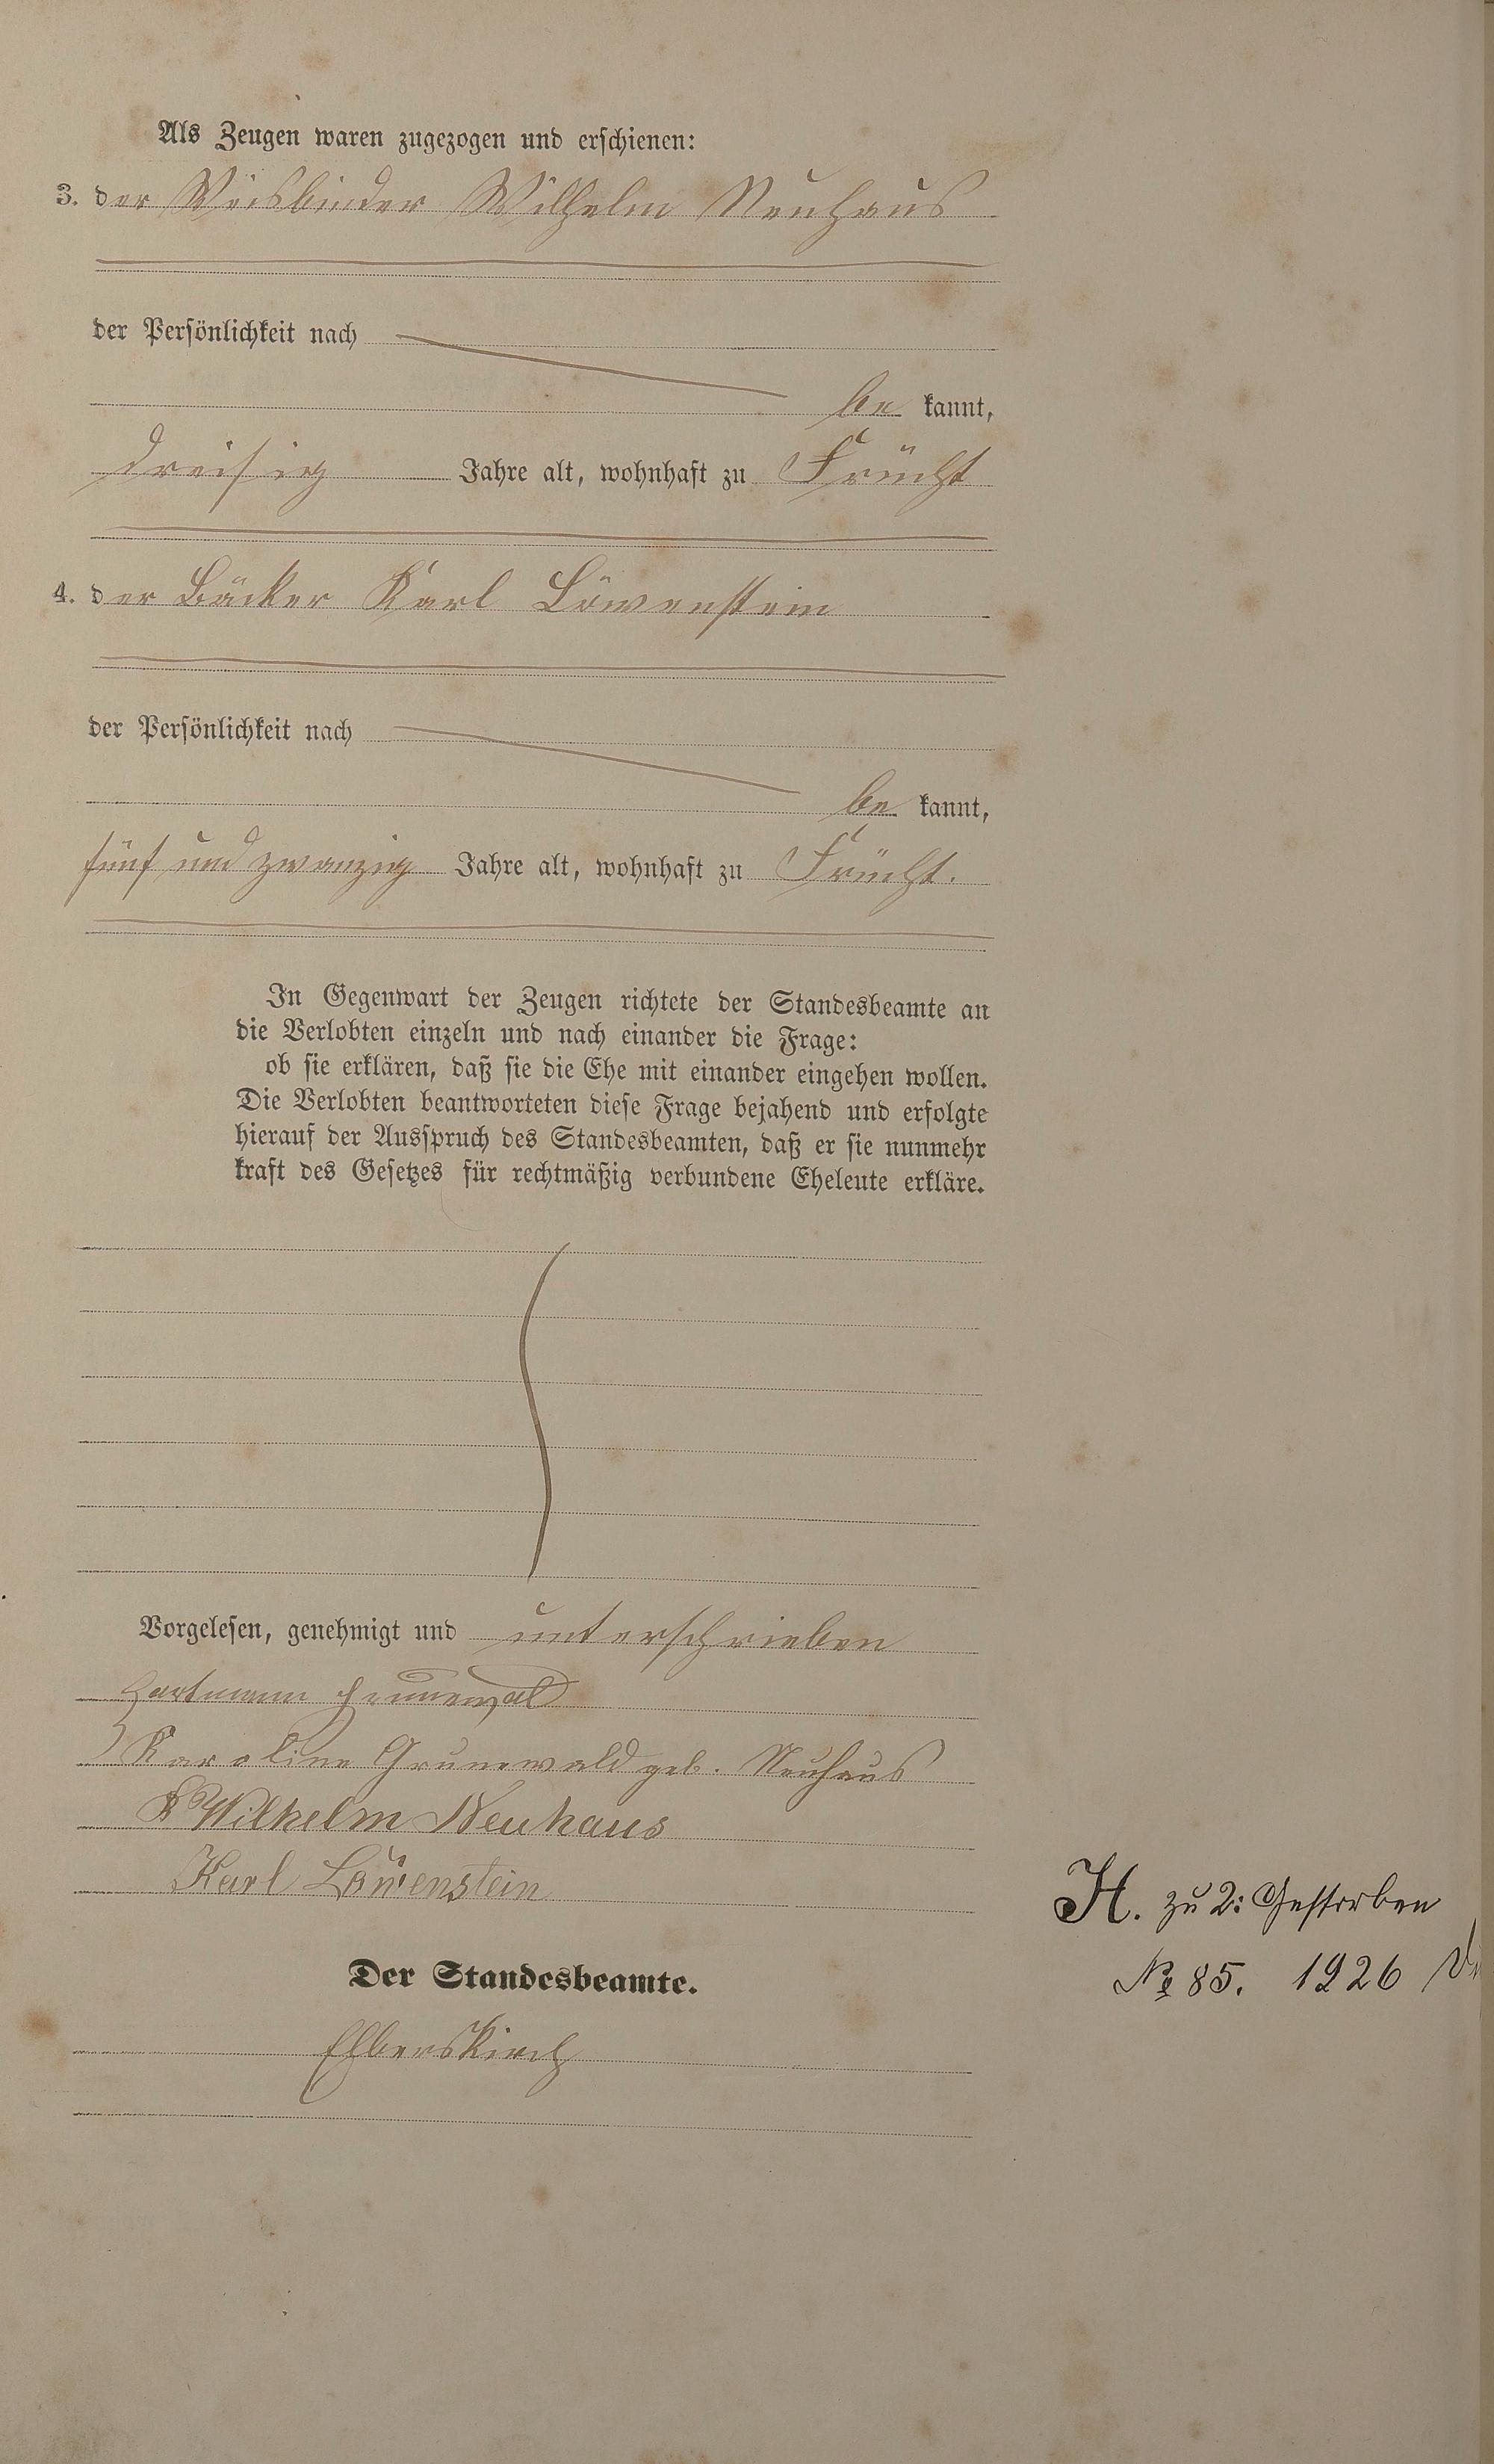 Als Zeugen waren zugezogen und erschienen:
3. der Weisbinder Wilhelm Neuhaus
der Persönlichkeit nach
be kannt,
dreisig Jahre alt, wohnhaft zu Frücht
4. der Bäcker Karl Löwenstein
der Persönlichkeit nach
be kannt,
fünf und zwanzig Jahre alt, wohnhaft zu Frücht.
In Gegenwart der Zeugen richtete der Standesbeamte an
die Verlobten einzeln und nach einander die Frage:
ob sie erklären, daß sie die Ehe mit einander eingehen wollen.
Die Verlobten beantworteten diese Frage bejahend und erfolgte
hierauf der Ausspruch des Standesbeamten, daß er sie nunmehr
kraft des Gesetzes für rechtmäßig verbundene Eheleute erkläre.
Vorgelesen, genehmigt und unterschrieben
Hartmann
Karoline Grunewald geb. Neuhaus
Wilhelm Neuhaus
Karl Löwenstein
H. zu 2: Gestorben
№ 85. 1926
Der Standesbeamte.